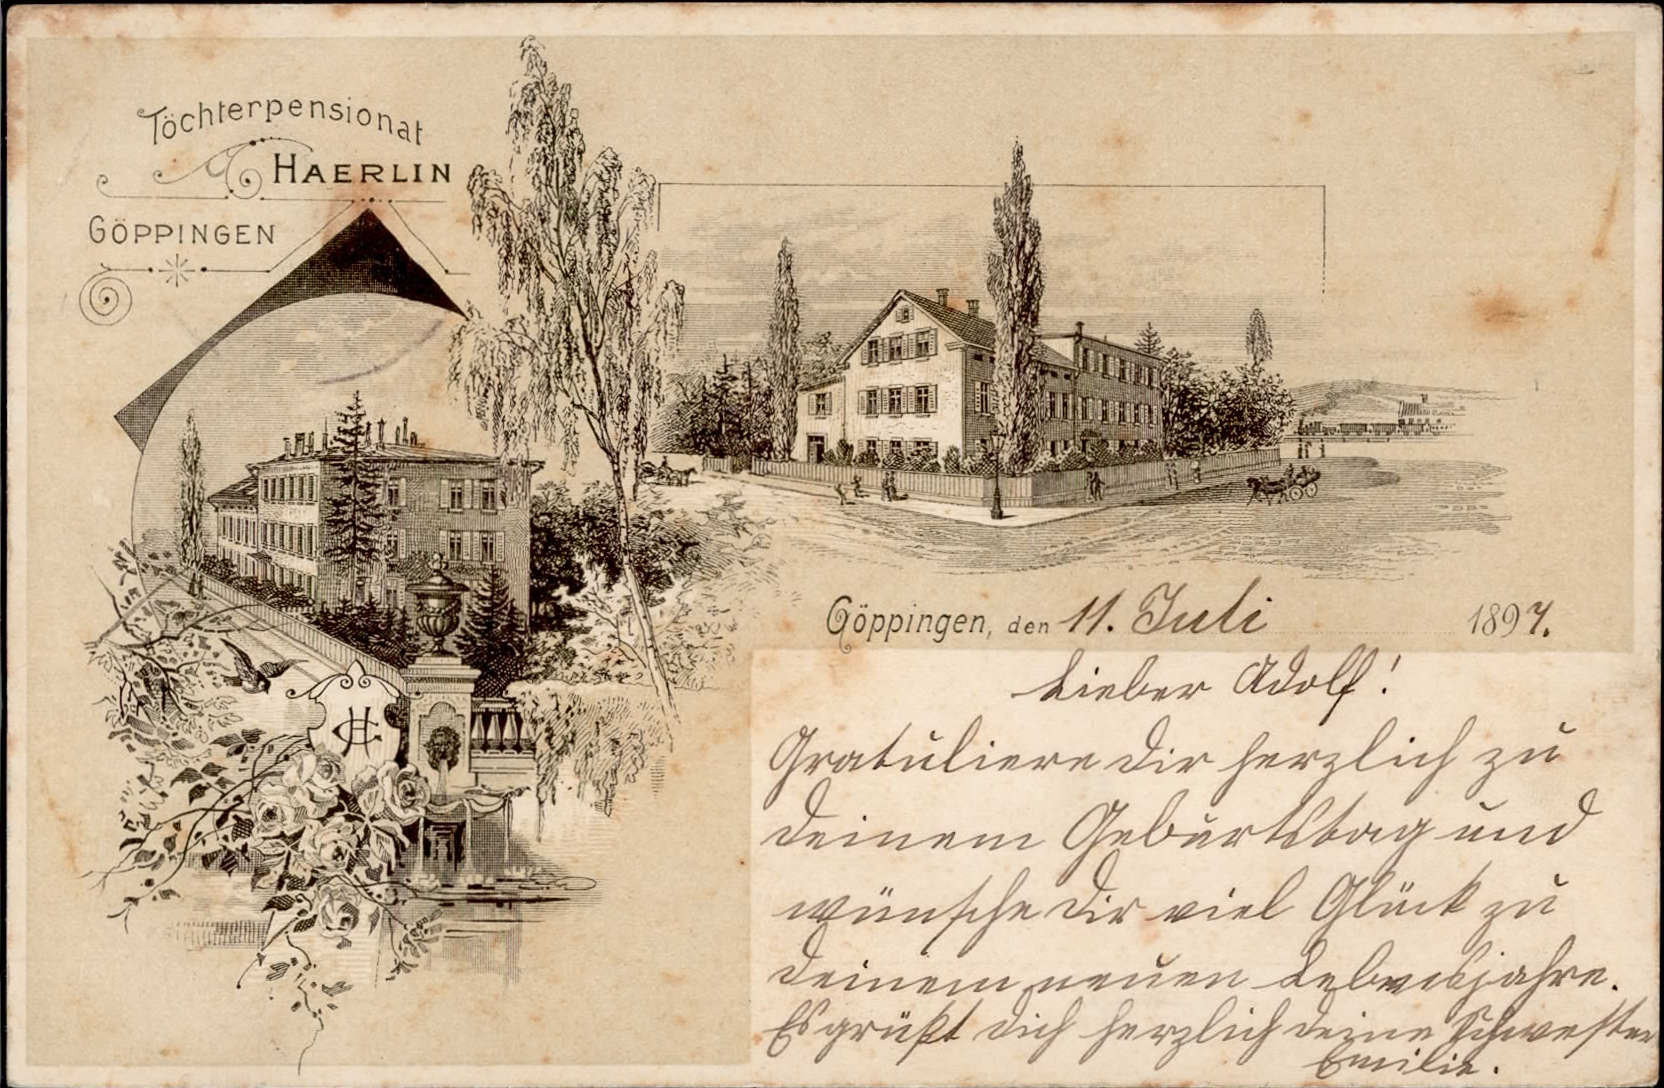 Töchterpensionat
HAERLIN
GÖPPINGEN
Göppingen, den 11. Juli 1897.
Lieber Adolf!
Gratuliere dir herzlich zu
deinem Geburtstag und
wünsche dir viel Glück zu
deinem neuen Lebensjahre.
Es grüßt dich herzlich deine Schwester
Emilie.